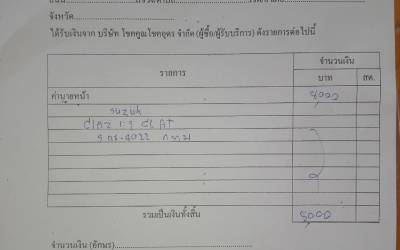 จังหวัด
ได้รับเงินจาก บริษัท โชคคูณโชคอุดร จำกัด (ผู้ซื้อ/ผู้รับบริการ) ดังรายการต่อไปนี้
รายการ จำนวนเงิน
บาท สต.
ค่านายหน้า 8000
suzuk
ciaz 1.2 GL AT
4022 กทม
รวมเป็นเงินทั้งสิ้น 8000
จำนวนเงิน (อักษร)